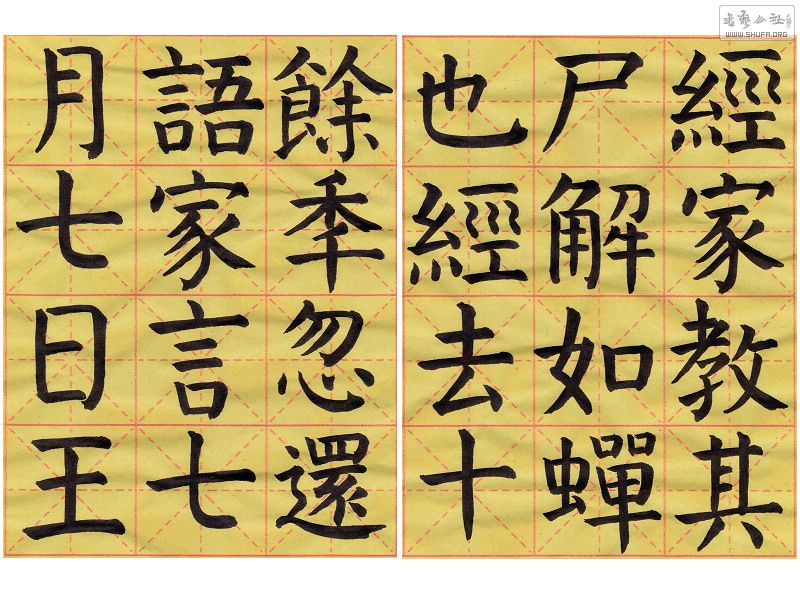 經家教其
尸解如蟬
也經去十
餘秊忽還
語家言七
月七日王
WWW.SHUFA.ORG